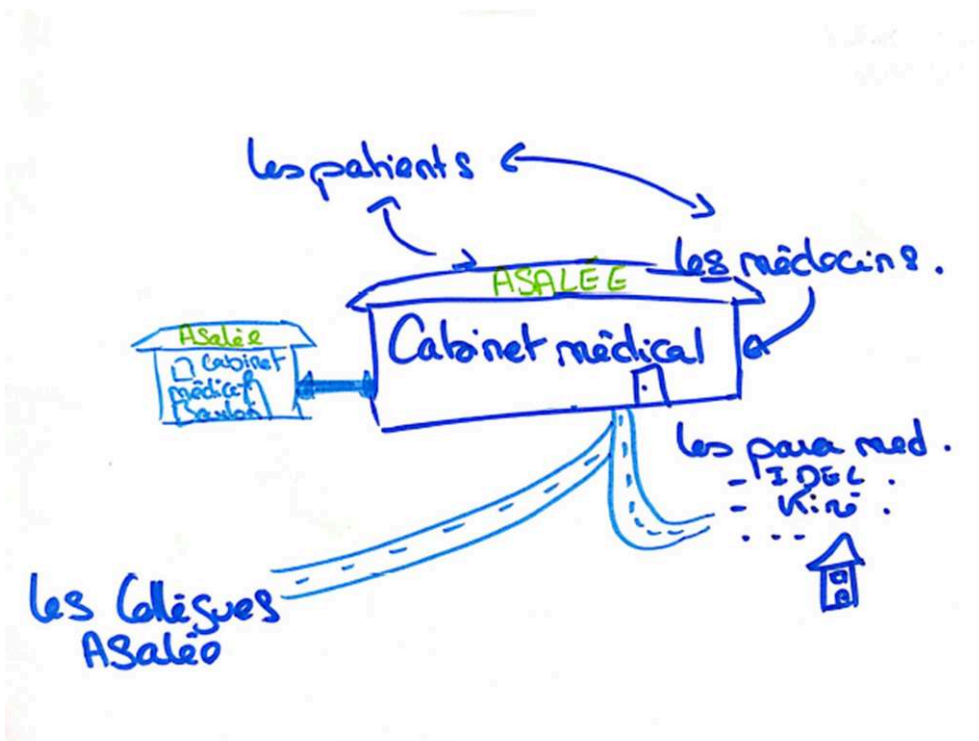 les patients
les médecins.
ASALÉE
Cabinet médical
Asalée
cabinet
médical
les para med.
- IDEL.
- Kiné.
. ...
les Collègues
ASalée